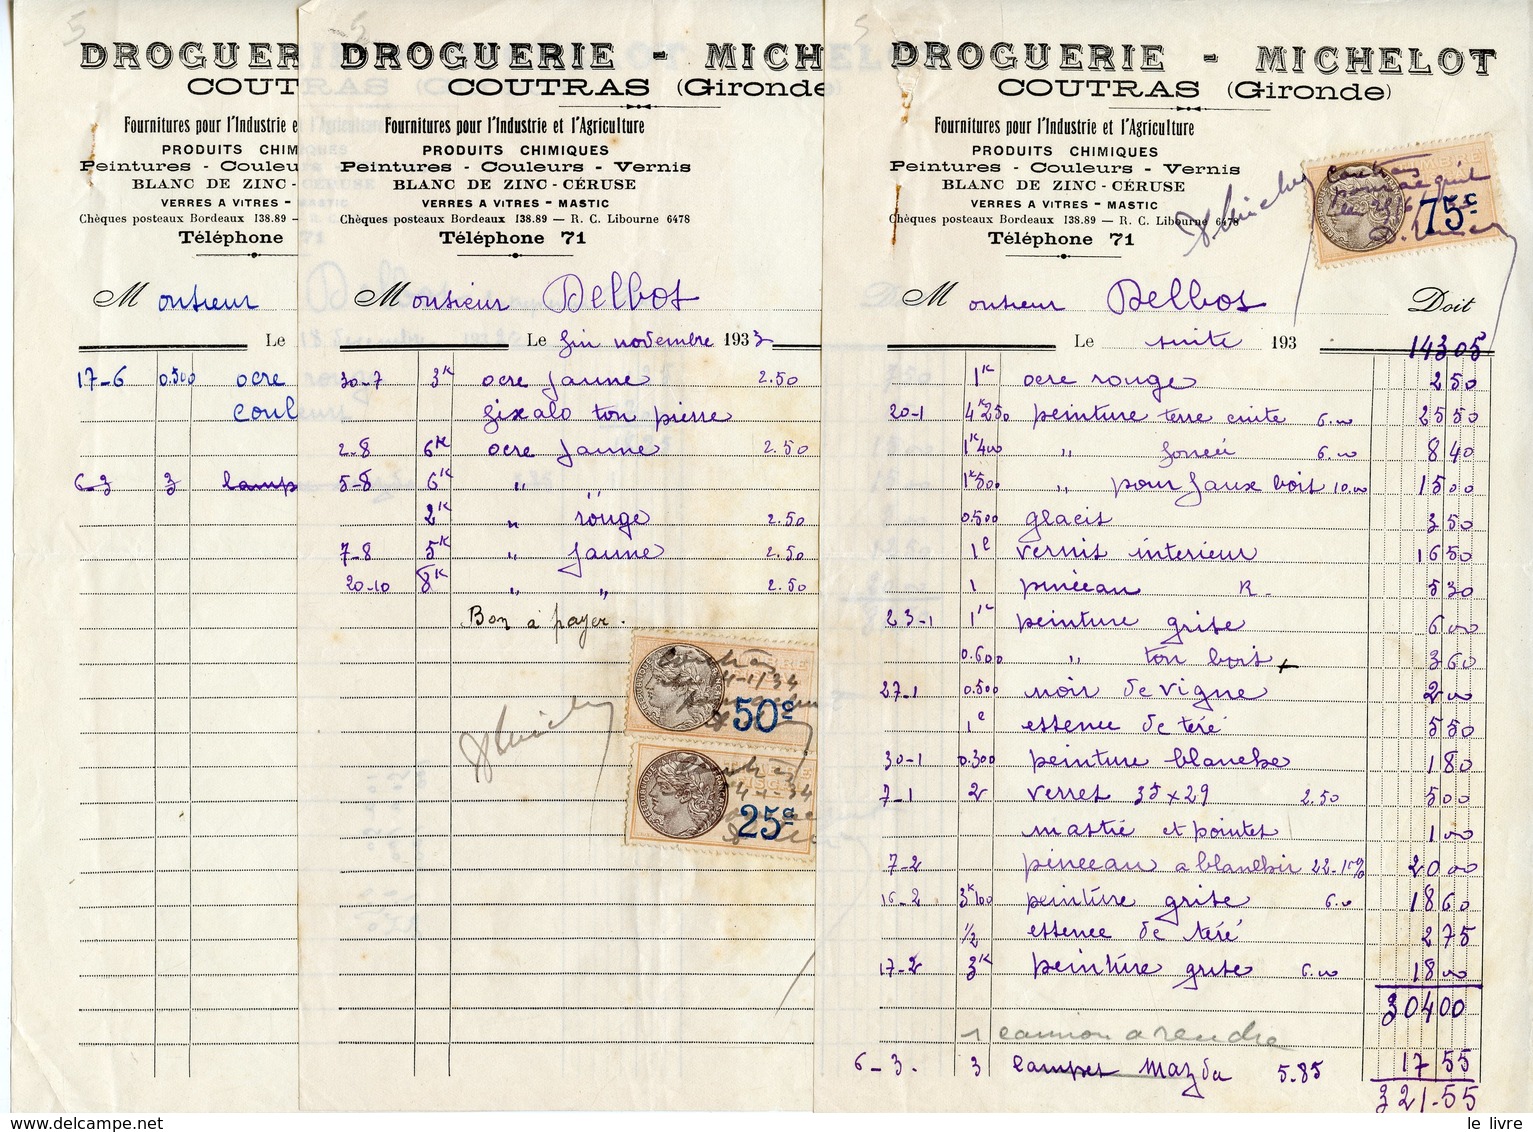 5
DROGUER
COUT
Fournitures pour l'Industrie e
PRODUITS CHIM
Peintures - Couleu
BLANC DE ZINC -
VERRES A VITRES -
Chèques postaux Bordeaux 138.89 —
Téléphone
Monsieur
Le
17-6 0.500 ocre
coul
6-3 3 lamp
DROGUERIE - MICH
COUTRAS (Gironde
Fournitures pour l'Industrie et l'Agriculture
PRODUITS CHIMIQUES
Peintures - Couleurs - Vernis
BLANC DE ZINC - CÉRUSE
VERRES A VITRES - MASTIC
Chèques posteaux Bordeaux 138.89 — R. C. Libourne 6478
Téléphone 71
Monsieur Delbos
Le fin novembre 1933
30-7 3K ocre jaune 2.50
fixalo ton pierre
2-8 6K ocre jaune 2.50
5-8 6K " "
2K " rouge 2.50
7-8 5K " jaune 2.50
20-10 8K " " 2.50
Bon à payer.
50c
25c
DROGUERIE - MICHELOT
COUTRAS (Gironde)
Fournitures pour l'Industrie et l'Agriculture
PRODUITS CHIMIQUES
Peintures - Couleurs - Vernis
BLANC DE ZINC - CÉRUSE
VERRES A VITRES - MASTIC
Chèques posteaux Bordeaux 138.89 — R. C. Libourne 6478
Téléphone 71
Coutras
pour acquit
75c
Monsieur Delbos Doit
Le suite 193
143 05
1K ocre rouge 2 50
20-1 4K250 peinture terre cuite 6.00 25 50
1K400 " foncée 6.00 8 40
1K500 " pour faux bois 10.00 15 00
0.500 glacis 3 50
1l vernis interieur 16 50
1 pinceau R. 5 30
23-1 1K peinture grise 6 00
0.600 " ton bois 3 60
27-1 0.500 noir de vigne 2 00
1l essence de teré 5 50
30-1 0.300 peinture blanche 1 80
7-1 2 verres 35 x 29 2.50 5 00
mastic et pointes 1 00
7-2 pinceau a blanchir 22-10% 20 00
16-2 3K100 peinture grise 6.00 18 60
1/2 essence de teré 2 75
17-2 3K peinture grise 6.00 18 00
304 00
1 camion a rendre
6-3. 3 lampes Mazda 5.85 17 55
321.55
delcampe.net
le livre